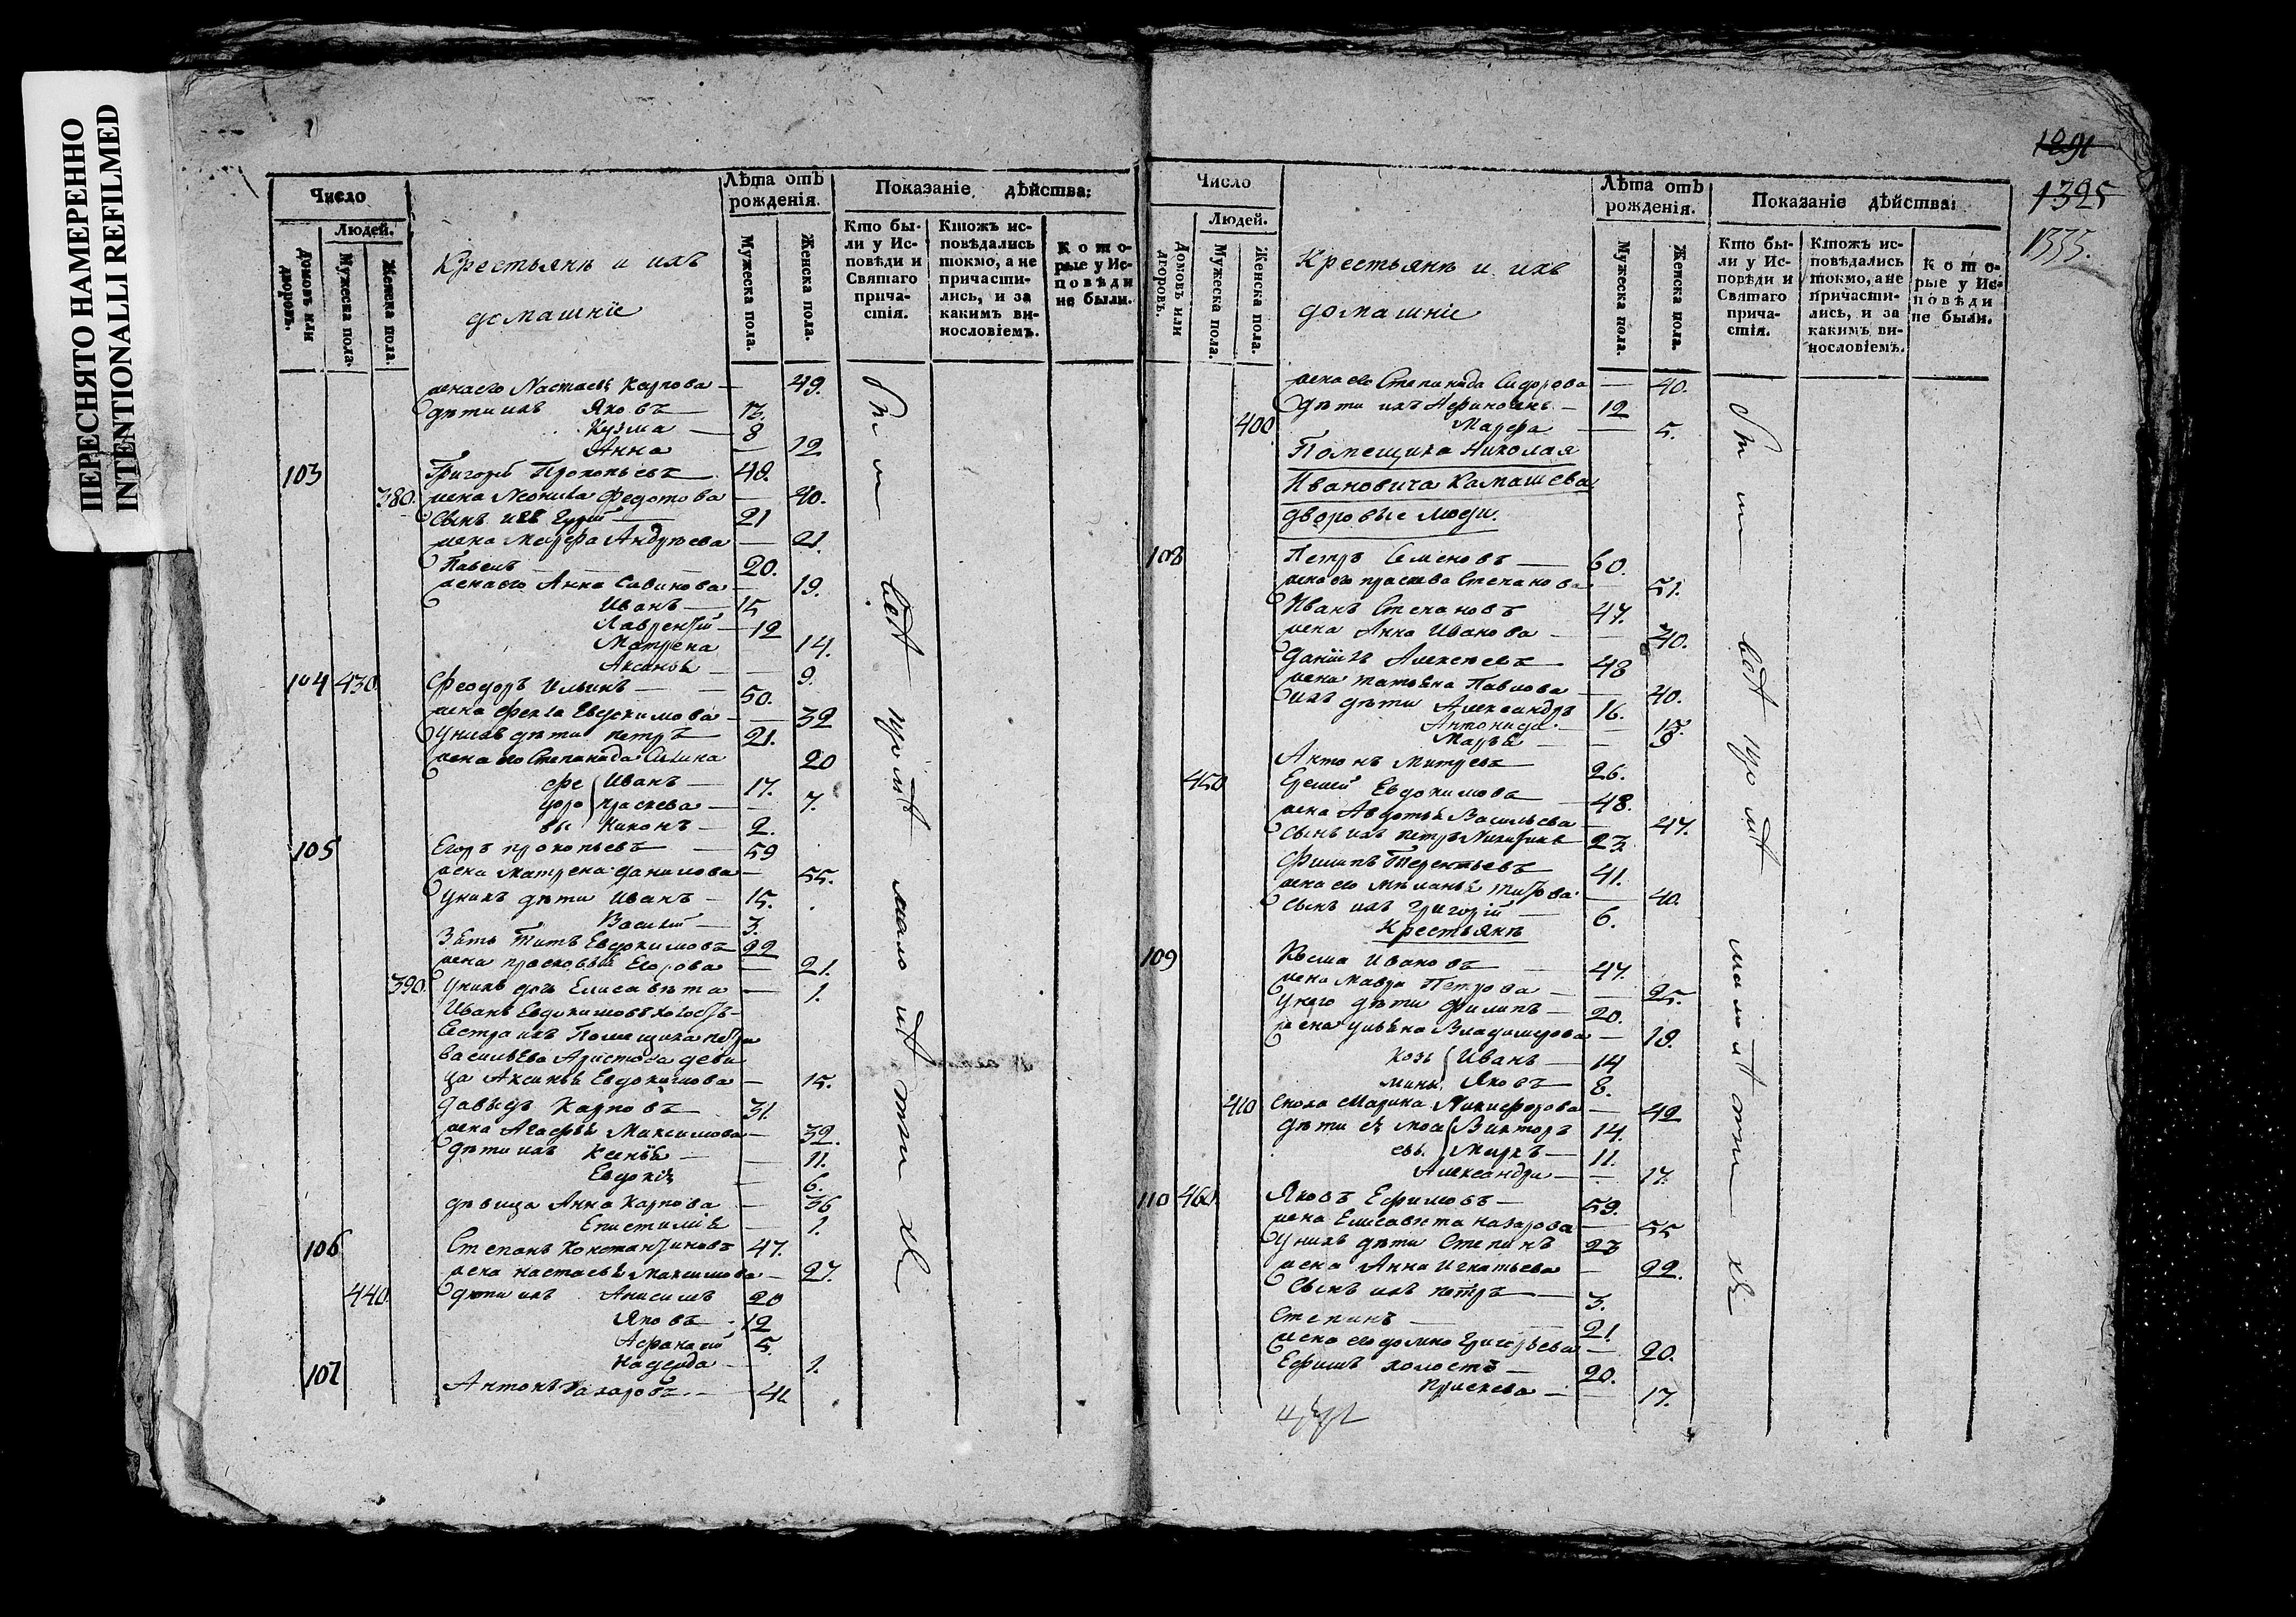 ПЕРЕСНЯТО НАМЕРЕННО
INTENTIONALLI REFILMED
Число
Людей.
Домовъ или дворовъ.
Мужеска пола.
Женска пола.
Крестьянѣ и ихъ
домашніе
Лѣта отъ
рожденія.
Мужеска пола.
Женска пола.
Показаніе дѣйства:
Кто бы-
ли у Ис-
повѣди и
Святаго
прича-
стія.
Ктожъ ис-
повѣдались
токмо, а не
причасти-
лись, и за
какимъ ви-
нословіемъ.
Кото-
рые у Ис-
повѣди
не были.
жена его Настасья Карпова — 49.
дѣти ихъ Яковъ 13.
Кузма — 8
Анна — 12
103 Григорй Прокопьевъ 48.
380. жена Леонила Федотова — 40.
сынъ ихъ 21
жена Марфа Андреева — 21.
Павелъ 20.
жена его Анна Савинова — 19.
Иванъ — 15
Лаврентй — 12
Матрена 14.
Аксинья — 9.
104 430. Феодоръ Ильинъ — 50.
жена Фекла Евдокимова — 32
у нихъ дѣти петръ 21.
жена его Степанида 20
фе Иванъ — 17.
доро праскева — 7.
вы Никонъ — 2.
105 Егоръ прокопьевъ — 59
жена Матрена данилова — 55.
у нихъ дѣти Иванъ — 15.
Василй — 3.
Зять Титъ Евдокимовъ 22
жена прасковья Егорова — 21.
390. у нихъ дочь Елисавѣта — 1.
Иванъ Евдокимовъ холостъ —
Сестра ихъ Помещика петра
васильева Аристова деви
ца Аксинья Евдокимова — 15.
давыдъ Карповъ 31.
жена Агафья Максимова — 32.
дѣти ихъ Ксенья — 11.
Евдокія — 6.
дѣвица Анна Карпова — 36
Епистимія — 1.
106 Степанъ Константиновъ 47.
жена настасья Максимова — 27.
440. дѣти ихъ Анисимъ 20
Яковъ 12
Афанасй 5.
Надежда — 1.
107 Антонъ Захаровъ — 41
1291
1395
1335.
Число
Людей.
Домовъ или дворовъ.
Мужеска пола.
Женска пола.
Крестьянѣ и ихъ
домашніе
Лѣта отъ
рожденія.
Мужеска пола.
Женска пола.
Показаніе дѣйства:
Кто бы-
ли у Ис-
повѣди и
Святаго
прича-
стія.
Ктожъ ис-
повѣдались
токмо, а не
причасти-
лись, и за
какимъ ви-
нословіемъ.
Кото-
рые у Ис-
повѣди
не были.
жена его Степанида Сидорова — 40.
дѣти ихъ — 12
400 Марфа — 5.
Помещика Николая
Ивановича Камашева
дворовые люди.
108 Петръ Семеновъ — 60.
жена его праскева Степанова 51.
Иванъ Степановъ 47.
жена Анна Иванова — 40.
данійлъ Алексеевъ 48
жена татьяна Павлова — 40.
ихъ дѣти Александръ 16.
Антонида — 13.
Марья — 9
Антонъ Митревъ 26.
450 Евдокимовъ — 48.
жена Авдотья Васильева — 47.
сынъ ихъ петръ 23
Филипъ Терентьевъ 41.
жена его меланья титова — 40.
сынъ ихъ Григорій — 6.
Крестьянѣ
109 Козма Ивановъ 47.
жена мавра Петрова — 25.
у него дѣти Филипъ — 20.
жена ульяна Владимерова — 18.
козь Иванъ — 14
мины Яковъ — 8.
410 Сноха Марина Никифорова — 42
дѣти ея мои Викторъ 14.
севы. Маркъ — 11.
Александра — 17.
110 460. Яковъ Ефимовъ — 59.
жена Елисавѣта назарова — 55
у нихъ дѣти Степанъ 23
жена Анна Игнатьева — 22.
Сынъ ихъ петръ — 3.
Степанъ — 21.
жена его домна Григорьева — 20.
Ефимъ холостъ — 20.
Праскева — 17.